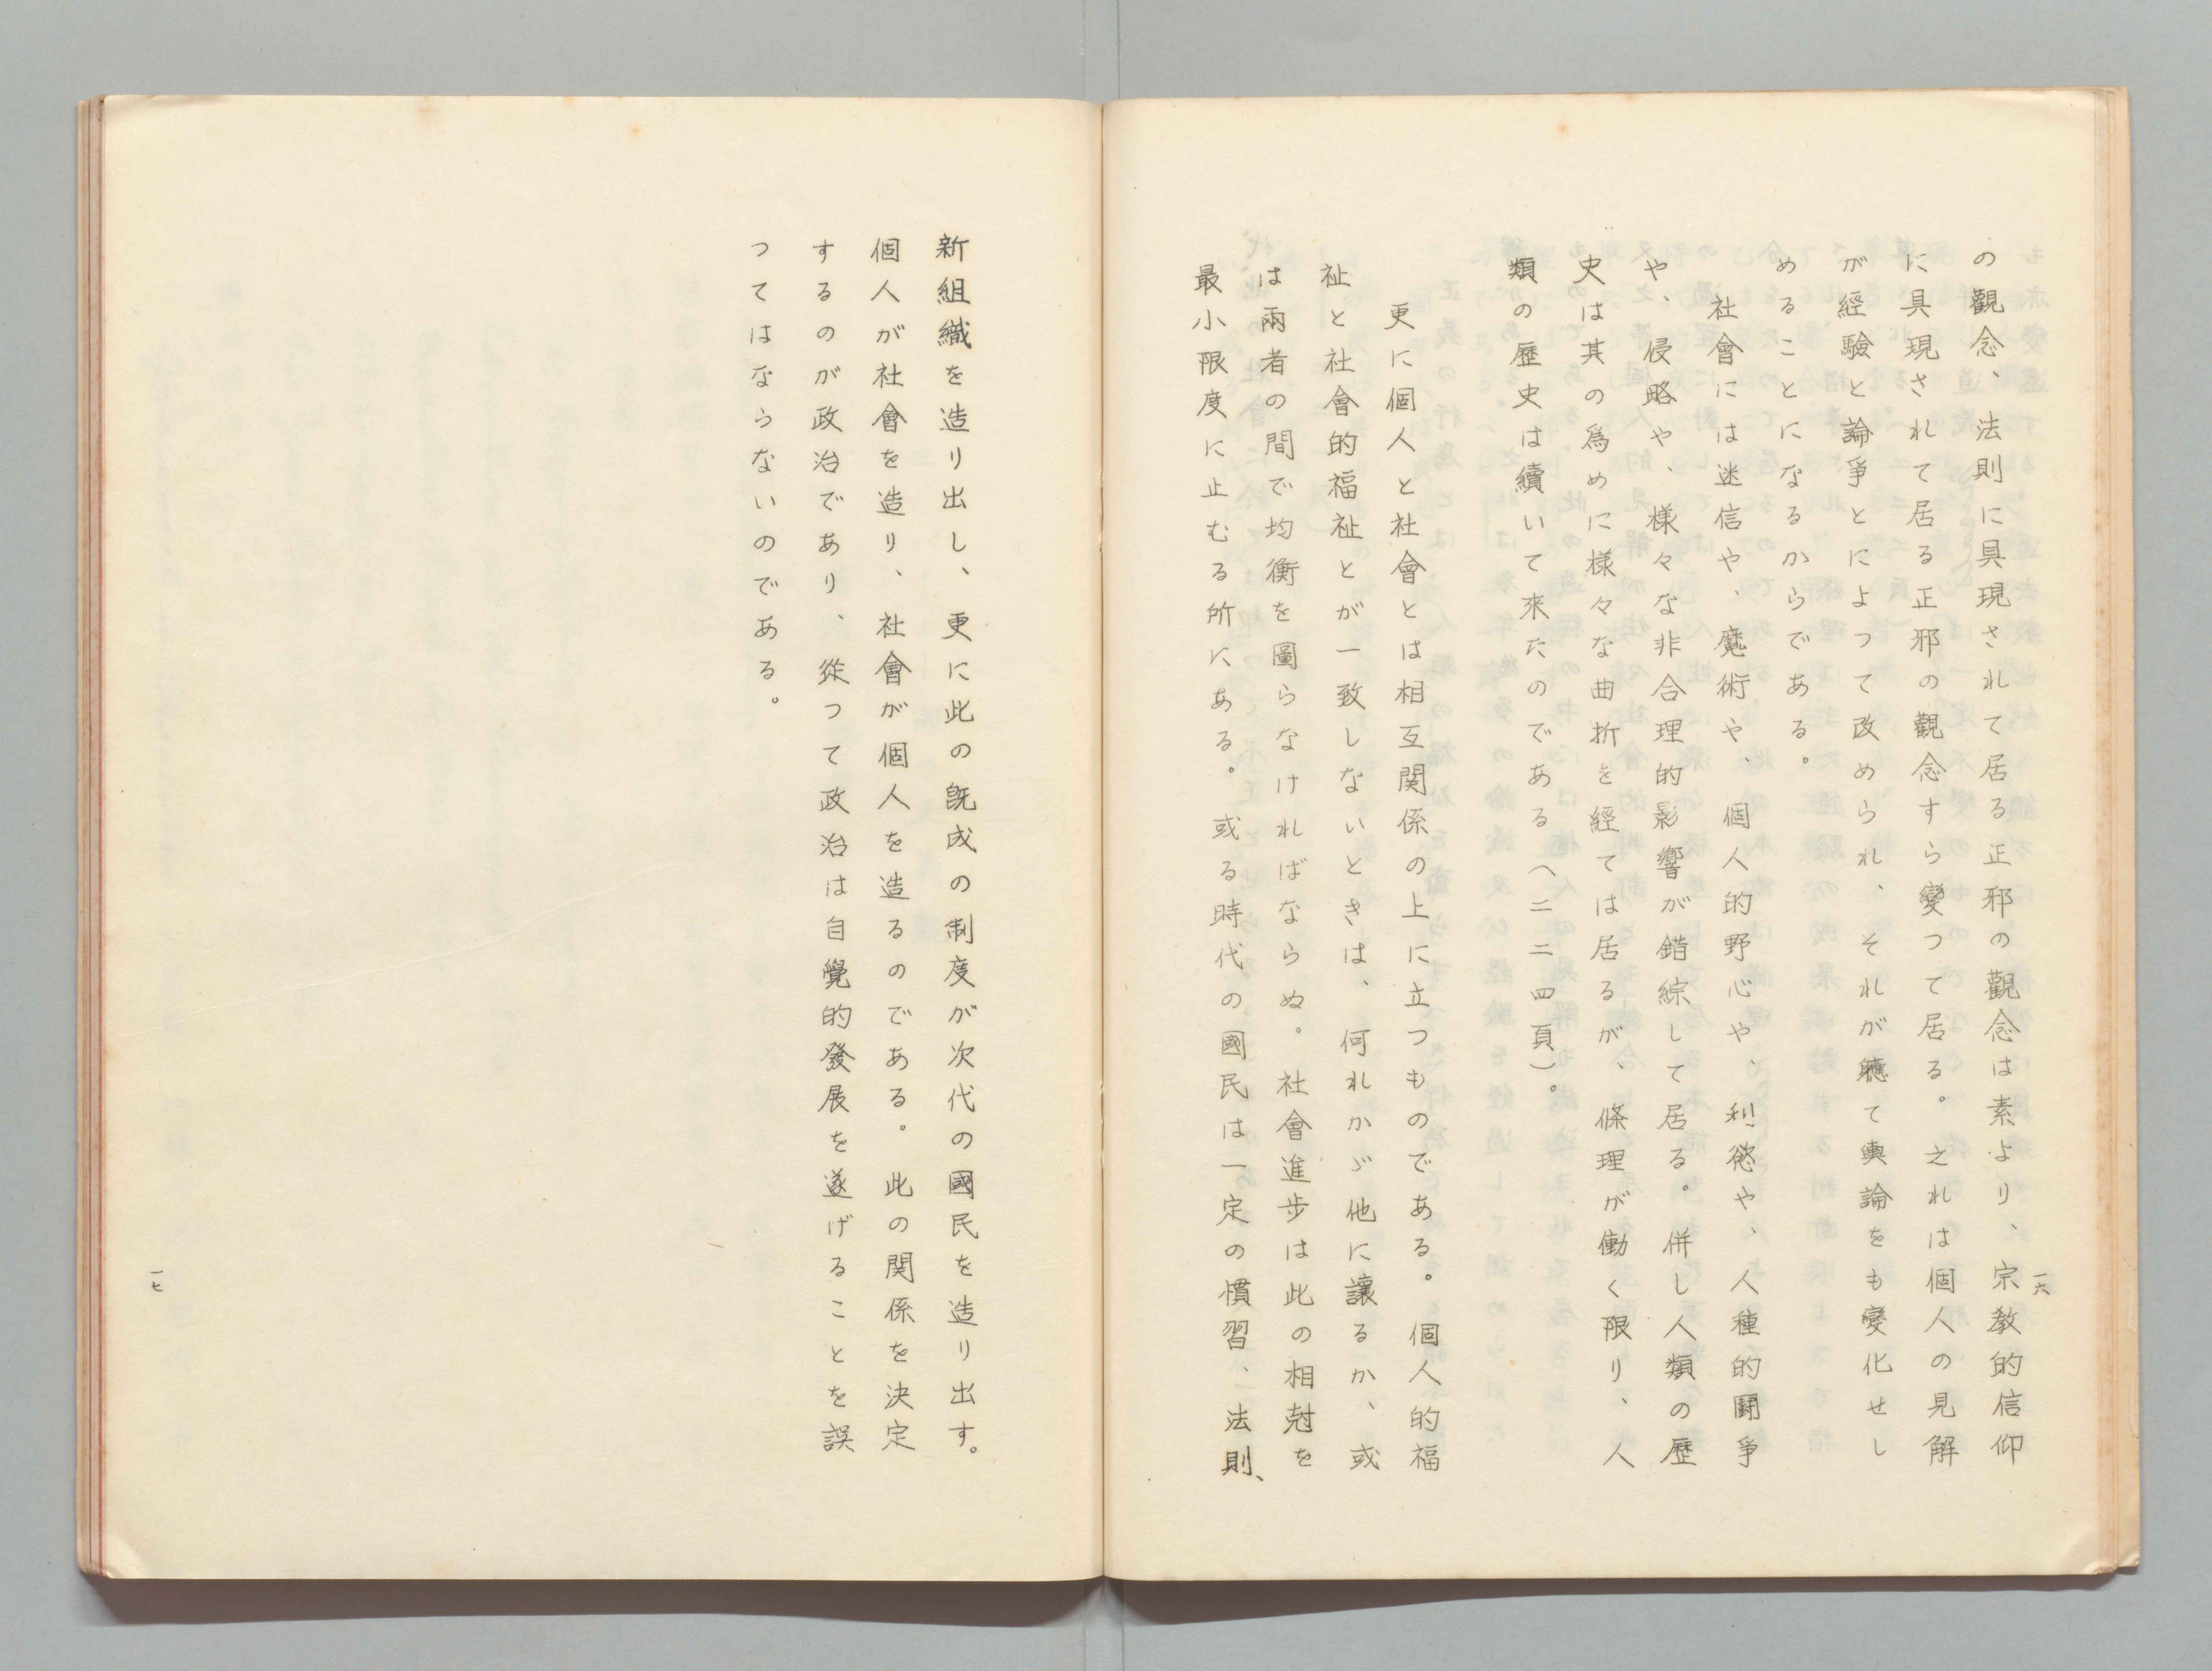 の觀念、法則に具現されて居る正邪の觀念は素より、宗教的信仰
に具現されて居る正邪の觀念すら變つて居る。之れは個人の見解
が經驗と論爭とによつて改められ、それが軈て輿論をも變化せし
めることになるからである。
社會には迷信や、魔術や、個人的野心や、利慾や、人種的鬪爭
や、侵略や、様々な非合理的影響が錯綜して居る。併し人類の歴
史は其の爲めに様々な曲折を經ては居るが、條理が働く限り、人
類の歴史は續いて來たのである(二二四頁)。
更に個人と社會とは相互関係の上に立つものである。個人的福
祉と社會的福祉とが一致しないときは、何れかゞ他に讓るか、或
は兩者の間で均衡を圖らなければならぬ。社會進歩は此の相尅を
最小限度に止むる所にある。或る時代の國民は一定の慣習、法則、
一六
新組織を造り出し、更に此の既成の制度が次代の國民を造り出す。
個人が社會を造り、社會が個人を造るのである。此の関係を決定
するのが政治であり、從つて政治は自覺的發展を遂げることを誤
つてはならないのである。
一七